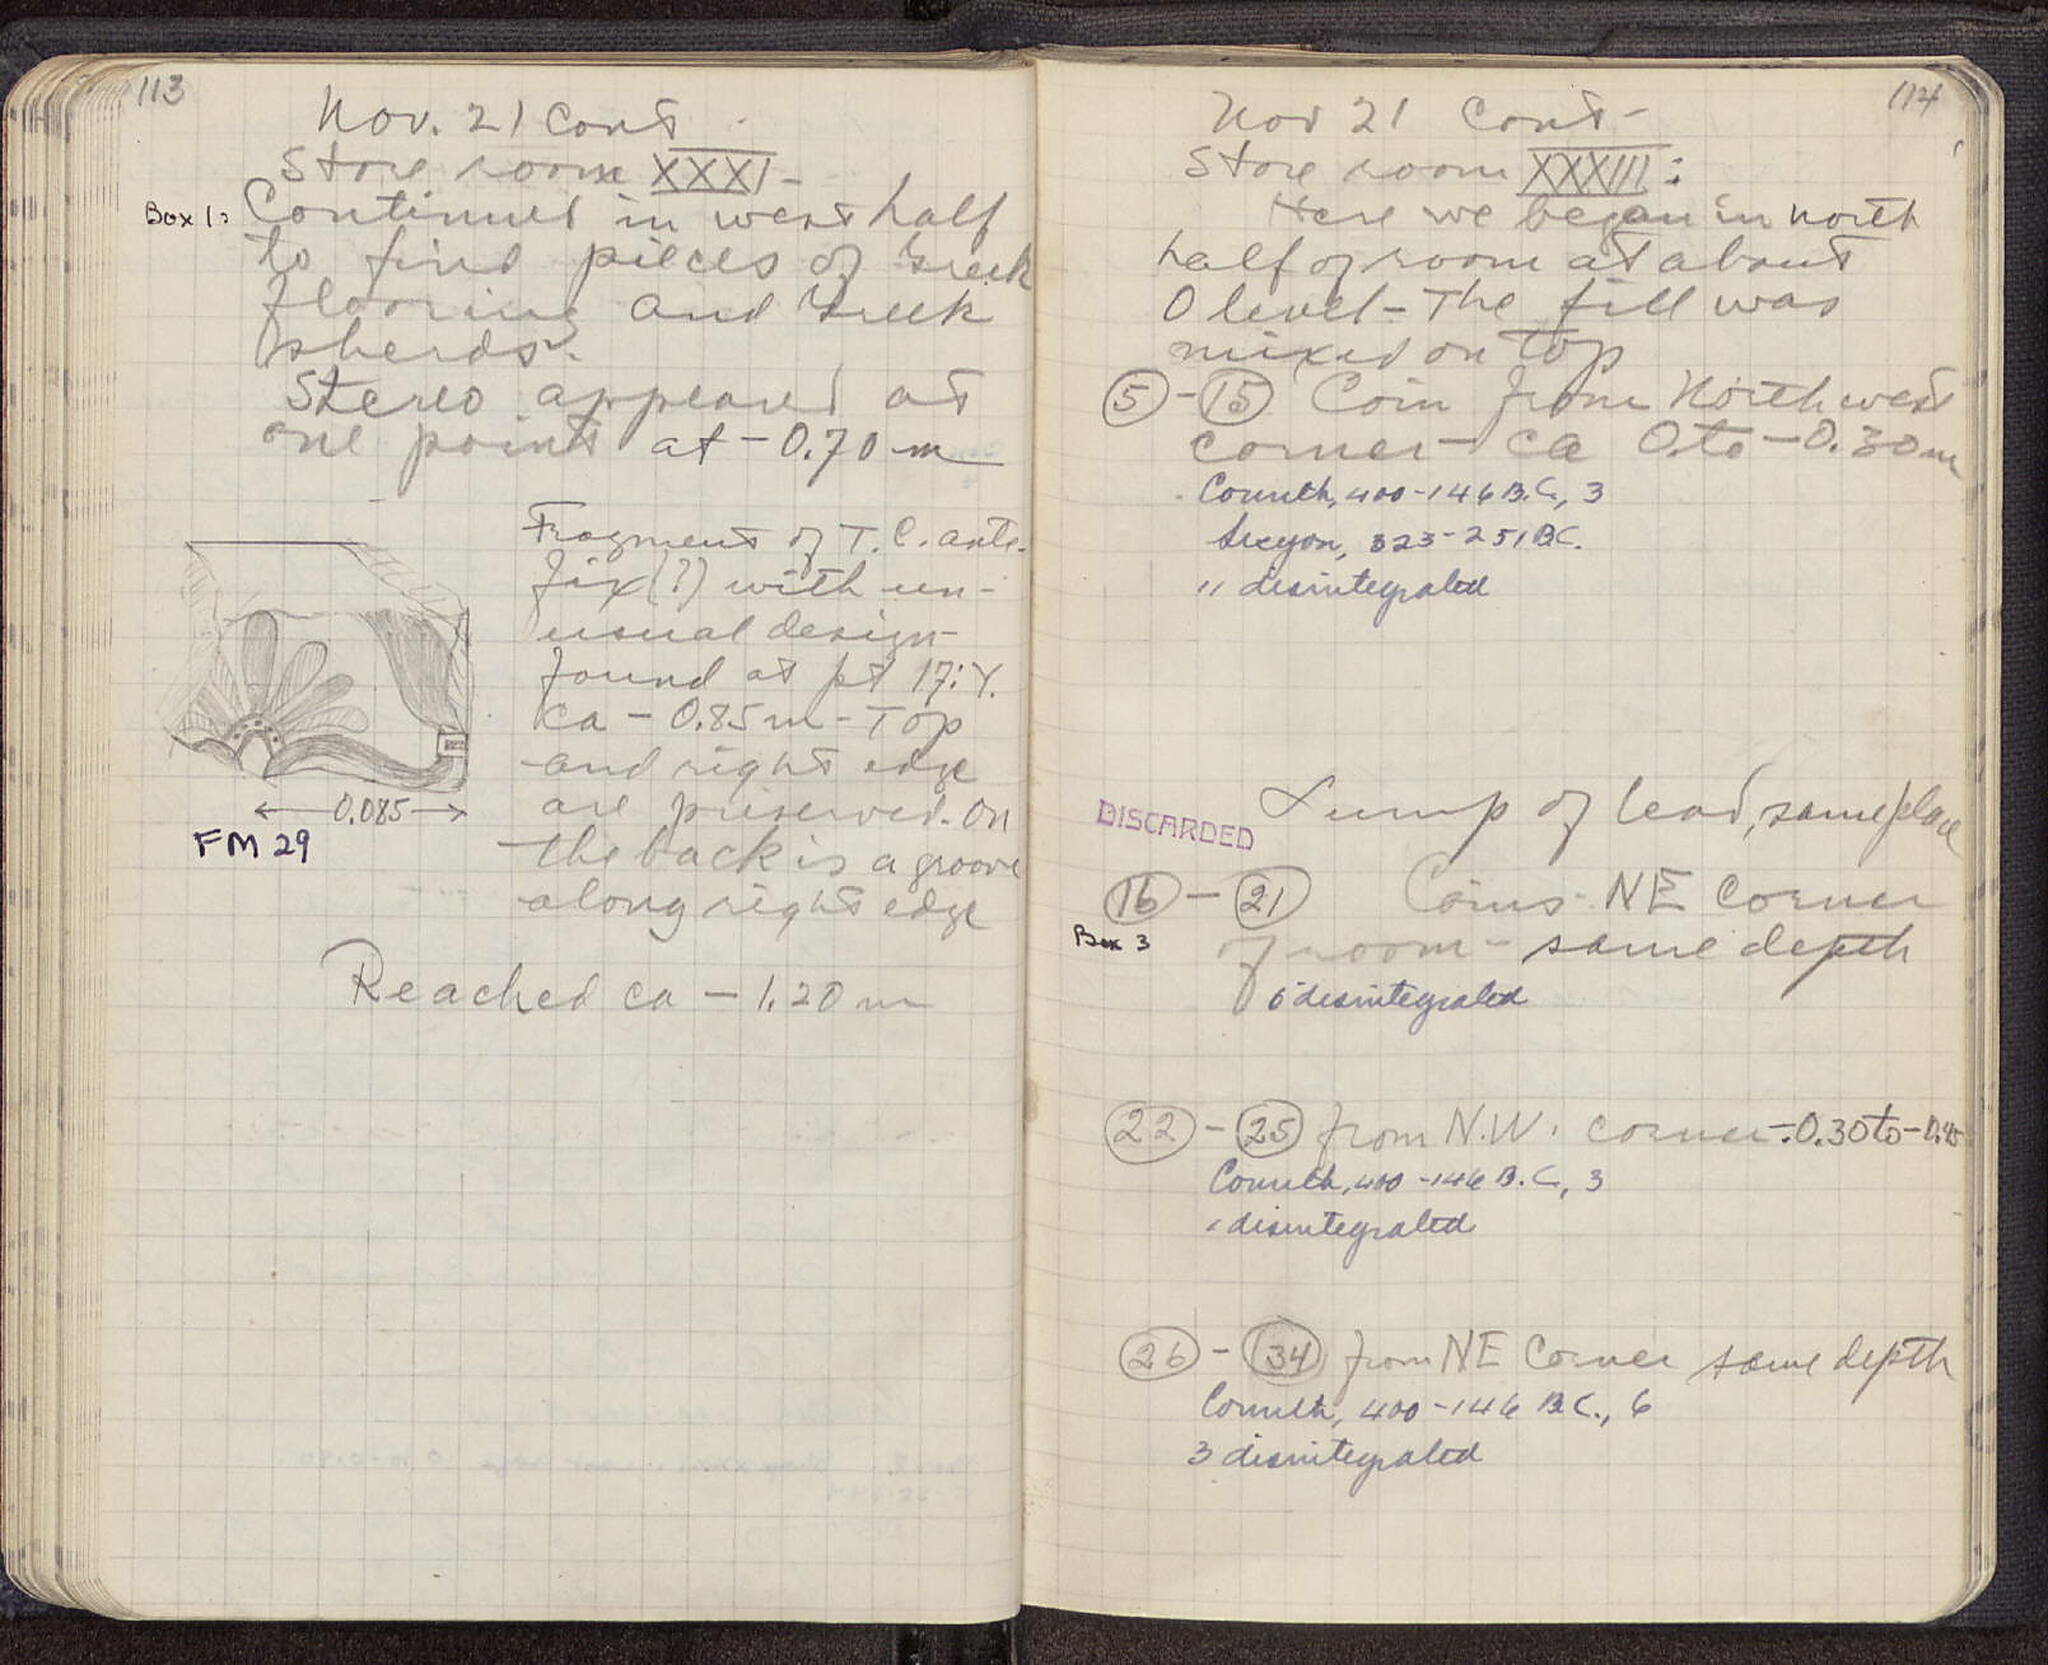 113
Nov. 21 Cont
Store room XXXI -
Box 1: Continued in west half
to find pieces of Greek
flooring and Greek
sherds.
Stereo appeared at
one point at - 0.70 m
Fragment of T. C. ante-
fix(?) with un-
usual design
found at pt 17:Y.
ca - 0.85 m - Top
and right edge
are preserved. On
the back is a groove
along right edge
0.085
FM 29
Reached ca - 1.20 m
114
Nov 21 Cont -
Store room XXXIII:
Here we began in north
half of room at about
0 level - The fill was
mixed on top
5 - 15 Coin from Northwest
corner - ca 0 to - 0.30 m
Corinth, 400-146 B.C., 3
Sicyon, 323-251 B.C.
" disintegrated
Lump of lead, same place
DISCARDED
16 - 21 Coins - NE Corner
Box 3
of room - same depth
6 disintegrated
22 - 25 from N.W. corner - 0.30 to - 0.45
Corinth, 400-146 B.C., 3
1 disintegrated
26 - 34 from NE Corner same depth
Corinth, 400-146 B.C., 6
3 disintegrated